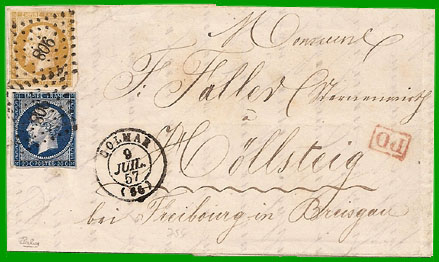 Monsieur
F: Faller Sternenwirth
à
Höllsteig
bei Freibourg in Breisgau
COLMAR
9
JUIL.
57
(66)
PD
908